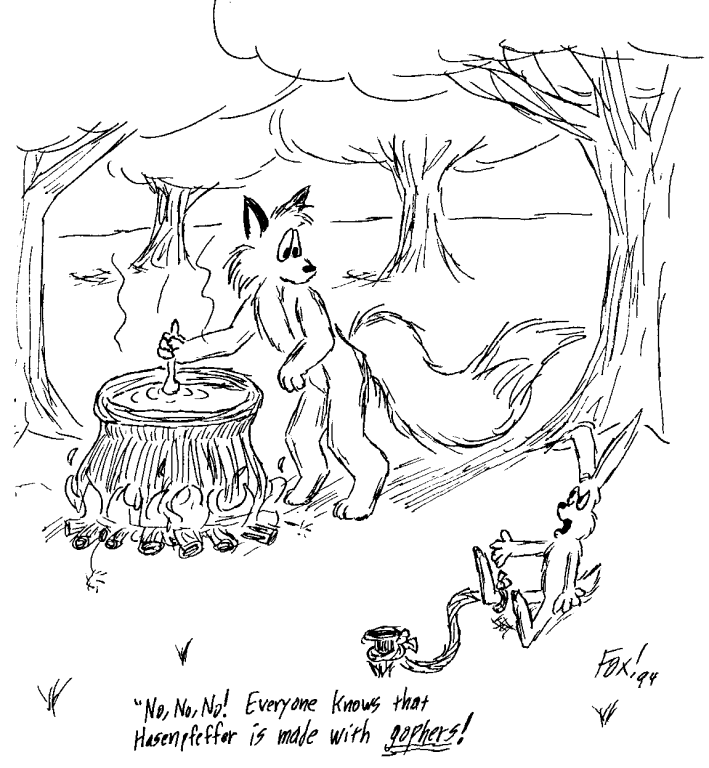 Fox! 94
"No, No, No! Everyone knows that
Hasenpfeffor is made with gophers!